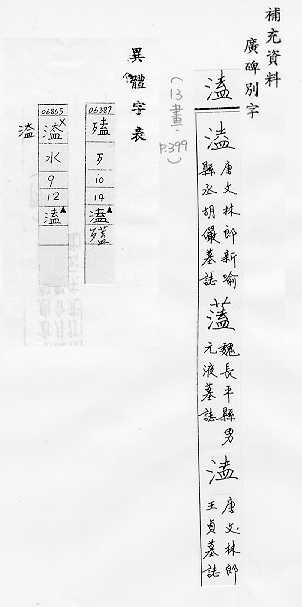 補充資料
廣碑別字
溘
(13畫.P.399)
溘 唐文林郎新喻
縣丞胡儼墓誌
魏長平縣男
元液墓誌
溘 唐文林郎
王貞墓誌
異體字表
06387
歹
10
14
溘
06865
水
9
12
溘
溘